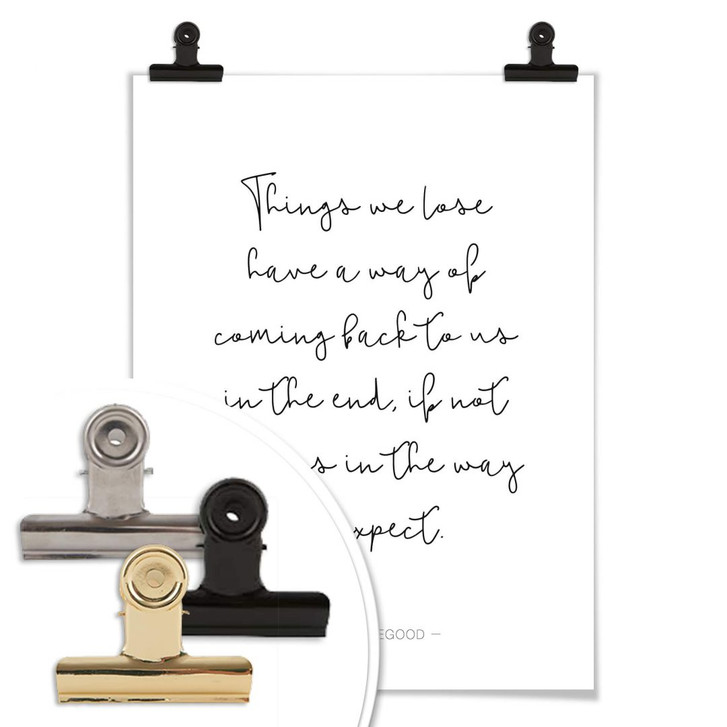 Things we lose
have a way of
coming back to us
in the end, if not
s in the way
xpect.
EGOOD —